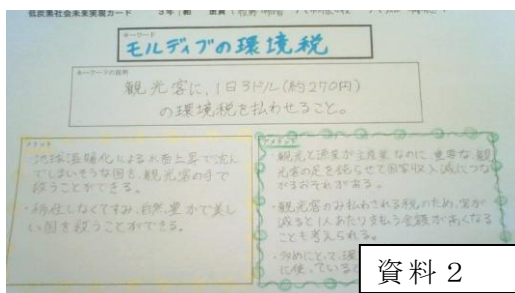 低炭素社会未来実現カード 3年1組
キーワード
モルディブの環境税
キーワードの説明
観光客に、1日3ドル(約270円)
の環境税を払わせること。
メリット
・地球温暖化による水面上昇で沈ん
でしまいそうな国を、観光客の手で
救うことができる。
・移住しなくてすみ、自然豊かで美し
い国を救うことができる。
デメリット
・観光と漁業が主産業なのに、重要な観
光客の足を鈍らせて国家収入減につな
がるおそれがある。
・観光客のみ払わされる税のため、客が
減ると1人あたり支払う金額が高くなる
ことも考えられる。
に使っている
資料2